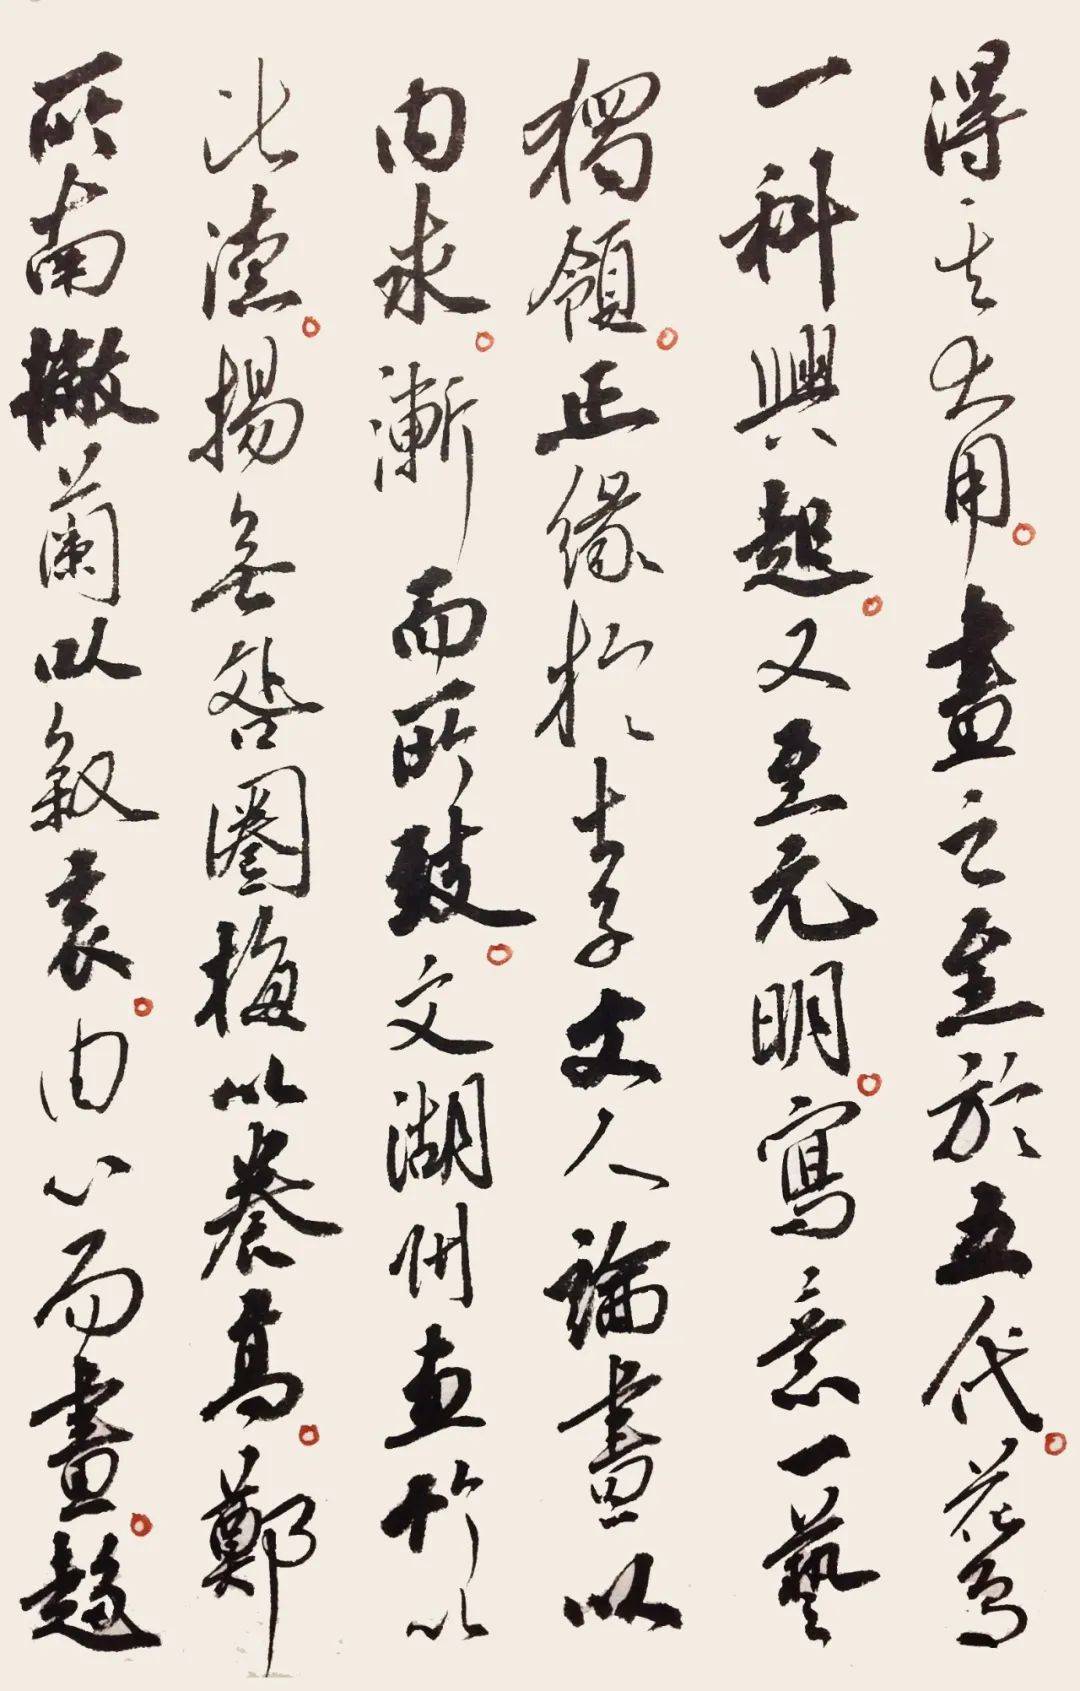 得其大用。畫之至於五代。花鳥
一科興起。又至元明。寫意一藝
獨領。正緣於士子文人論畫以
内求。漸而所致。文湖州畫竹以
比德。揚无咎圈梅以養高。鄭
所南撇蘭以叙哀。由心而畫。趙